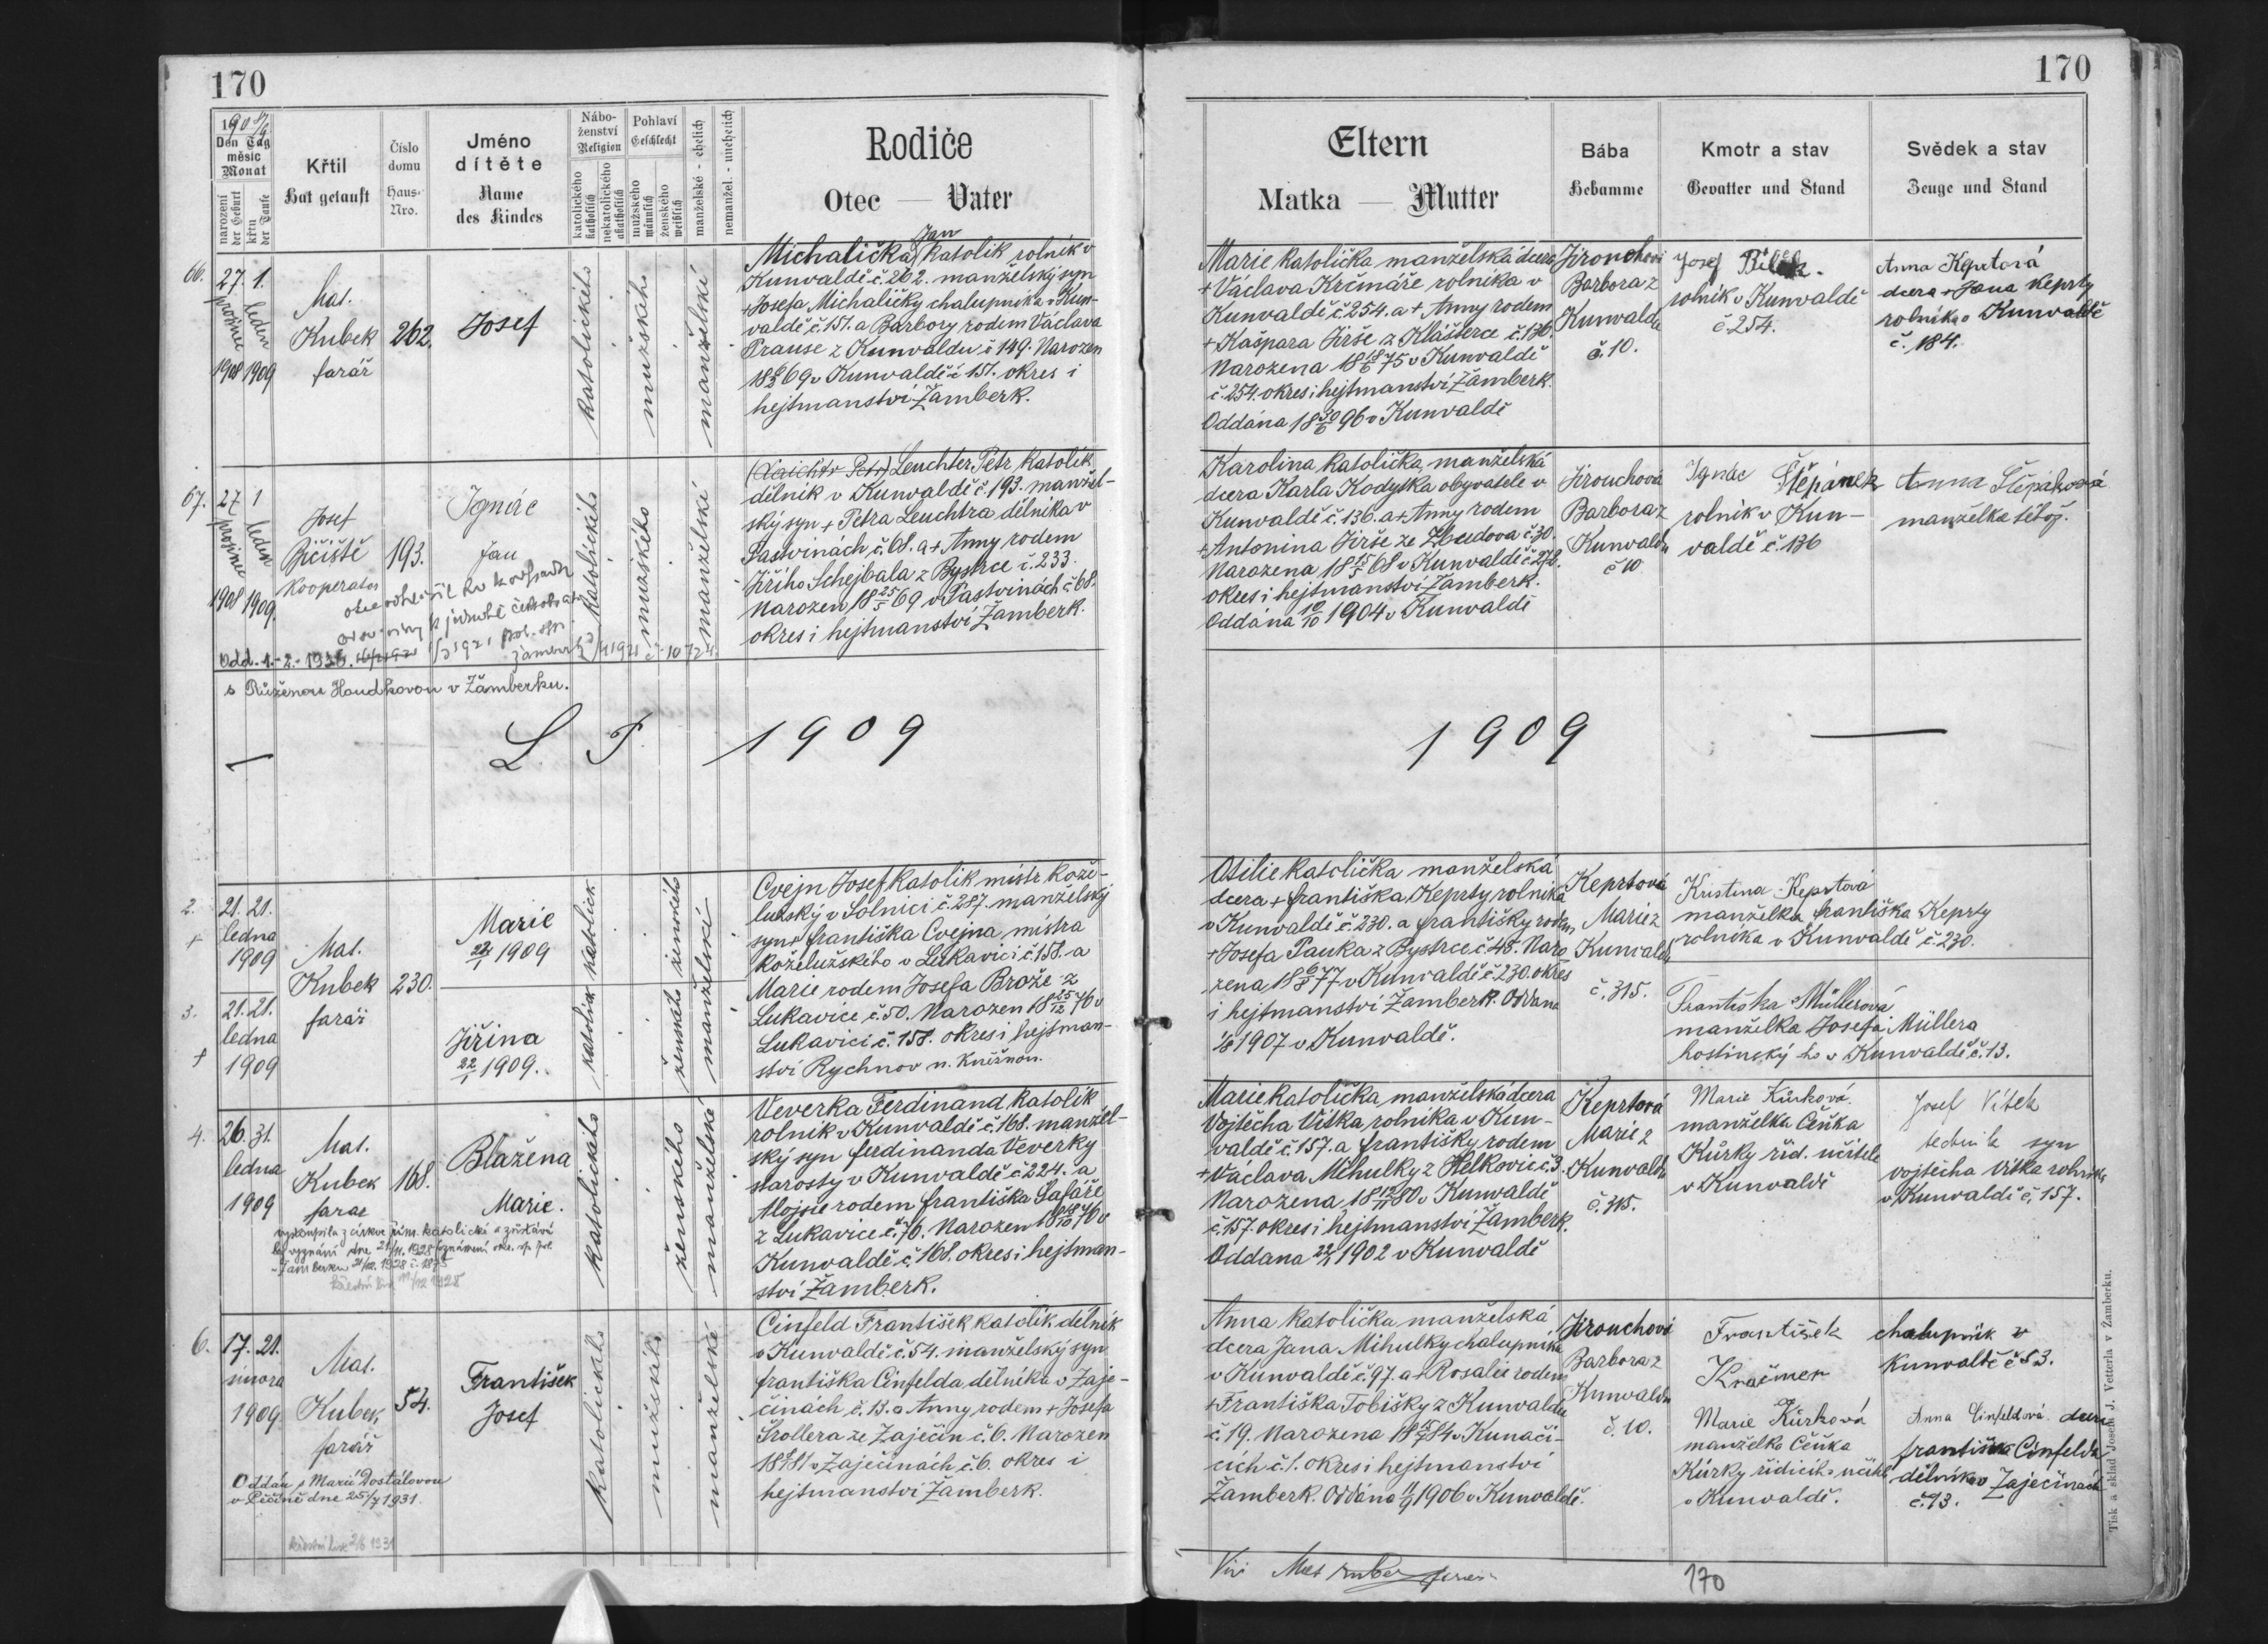 170
190 8/9
Den Tag
měsíc
Monat
narození
der Geburt
křtu
der Taufe
Křtil
Hat getauft
Číslo
domu
Haus-
Nro.
Jméno
dítěte
Name
des Kindes
Nábo-
ženství
Religion
katolického
katholisch
nekatolického
akatholisch
Pohlaví
Geschlecht
mužského
männlich
ženského
weiblich
manželské - ehelich
nemanžel. - unehelich
Rodiče
Otec — Vater
66.
27. 1.
prosince leden
1908 1909
Mat.
Kubek
farář
262.
Josef
katolického
mužského
manželské
Jan
Michalička katolik rolník v
Kunvaldě č. 262. manželský syn
+Josefa Michaličky chalupníka v Kun-
valdě č. 151. a Barbory rodem Václava
Prause z Kunvaldu č 149. Narozen
69 v Kunvaldě č 151. okres i
hejtmanství Žamberk.
67.
27 1
prosince leden
1908 1909.
Josef
Bičiště
Kooperator
193.
Ignác
Jan
katolického
mužského
manželské
(Laichtr Petr) Leuchter Petr katolík
dělník v Kunvaldě č. 193. manžel-
ský syn + Petra Leuchtra dělníka v
Pastvinách č. 68. a + Anny rodem
Jiřího Schejbala z Bystrce č. 233.
Narozen 18 25/5 69 v Pastvinách č 68.
okres i hejtmanství Žamberk.
Odd. 1.-2.-1936.
s Růženou Houdkovou v Žamberku.
L. P. 1909
2.
+
21. 21.
ledna
1909
Mat.
Kubek
farář
230.
Marie
22/1 1909
katolick
ženského
manželské
Cvejn Josef katolík mistr kože-
lužský v Solnici č. 287. manželský
syn + františka Cvejna mistra
koželužského v Lukavici č. 158. a
Marie rodem Josefa Brože z
Lukavice č. 50. Narozen 18 25/12 76 v
Lukavici č. 158. okres i hejtman-
ství Rychnov n. Kněžnou.
3.
+
21. 21.
ledna
1909
Jiřina
22/1 1909.
katolick
ženského
manželské
4.
26. 31.
ledna
1909
Mat.
Kubek
farář
168.
Blažena
Marie.
katolického
ženského
manželské
Veverka Ferdinand katolík
rolník v Kunvaldě č. 168. manžel-
ský syn ferdinanda Veverky
starosty v Kunvaldě č 224. a
Aloisie rodem františka Šafáře
z Lukavice č. 70. Narozen 76 v
Kunvaldě č. 168. okres i hejtman-
ství Žamberk.
vystoupila z církve řím. katolické a zůstává
bez vyznání dne 21/11. 1928 oznámení okr. sp. pol.
1928 č. 1875
6.
17. 21.
února
1909.
Mat.
Kubek
farář
54.
František
Josef
katolického
mužského
manželské
Cinfeld František katolík dělník
v Kunvaldě č. 54. manželský syn
františka Cinfelda dělníka v Zaje-
činách č. 13. a Anny rodem + Josefa
Šrollera ze Zaječin č. 6. Narozen
81 v Zaječinách č. 6. okres i
hejtmanství Žamberk.
Oddán s Marií Dostálovou
v Pěčíně dne 25/7 1931.
křestní list 2/6 1931
170
Eltern
Matka — Mutter
Bába
Hebamme
Kmotr a stav
Gevatter und Stand
Svědek a stav
Zeuge und Stand
Marie katolička manželská dcera
+ Václava Krčmáře rolníka v
Kunvaldě č 254. a + Anny rodem
+ Kašpara Jirše z Klášterce č. 136.
Narozena 18 18/6 75 v Kunvaldě
č. 254. okres i hejtmanství Žamberk.
Oddána 18 30/6 96 v Kunvaldě
Jirouchová
Barbora z
Kunvaldu
č. 10.
Josef Bílek.
rolník v Kunvaldě
č 254.
Anna Keprtová
dcera + Jana Keprty
rolníka v Kunvaldě
č. 184.
Karolina katolička manželská
dcera Karla Kodytka obyvatele v
Kunvaldě č. 136. a + Anny rodem
+ Antonína Jirše ze Zbudova č 30.
Narozena 18 15/5 68 v Kunvaldě č 272.
okres i hejtmanství Žamberk.
Oddána 10/10 1904 v Kunvaldě
Jirouchová
Barbora z
Kunvaldu
č 10
Ignác Štěpánek
rolník v Kun-
valdě č. 136
Anna Štěpánková
manželka téhož.
1909 —
Otilie katolička manželská
dcera + františka Keprty rolníka
v Kunvaldě č. 230. a františky rodem
+ Josefa Pauka z Bystrce č. 48. Naro-
zena 18 6/8 77 v Kunvaldě č 230. okres
i hejtmanství Žamberk. Oddána
1907 v Kunvaldě.
Keprtová
Marie z
Kunvaldu
č. 315.
Kristina Keprtová
manželka františka Keprty
rolníka v Kunvaldě č. 230.
Františka Müllerová
manželka Josefa Müllera
hostinský ho v Kunvaldě č. 13.
Marie katolička manželská dcera
Vojtěcha Vítka rolníka v Kun-
valdě č 157. a františky rodem
+ Václava Mihulky z Helkovic č. 3.
Narozena 80 v Kunvaldě
č. 157. okres i hejtmanství Žamberk.
Oddána 1902 v Kunvaldě
Keprtová
Marie z
Kunvaldu
č. 315.
Marie Kůrková.
manželka Čeňka
Kůrky říd. učitele
v Kunvaldě
Josef Vítek
technik syn
vojtěcha Vítka rolníka
v Kunvaldě č. 157.
Anna katolička manželská
dcera Jana Mihulky chalupníka
v Kunvaldě č. 97. a + Rosalie rodem
+ Františka Tobišky z Kunvaldu
č. 19. Narozena 84 v Kunači-
cích č. 1. okres i hejtmanství
Žamberk. Oddána 1906 v Kunvaldě.
Jirouchová
Barbora z
Kunvaldu
č. 10.
František
Kračmer
chalupník v
Kunvaldě č 53.
Marie Kůrková
manželka Čeňka
Kůrky řídícího učitele
v Kunvaldě.
Anna Cinfeldová dcera
františka Cinfelda
dělníka v Zaječinách
č. 13.
170
Tisk a sklad Josefa J. Vetterla v Žamberku.